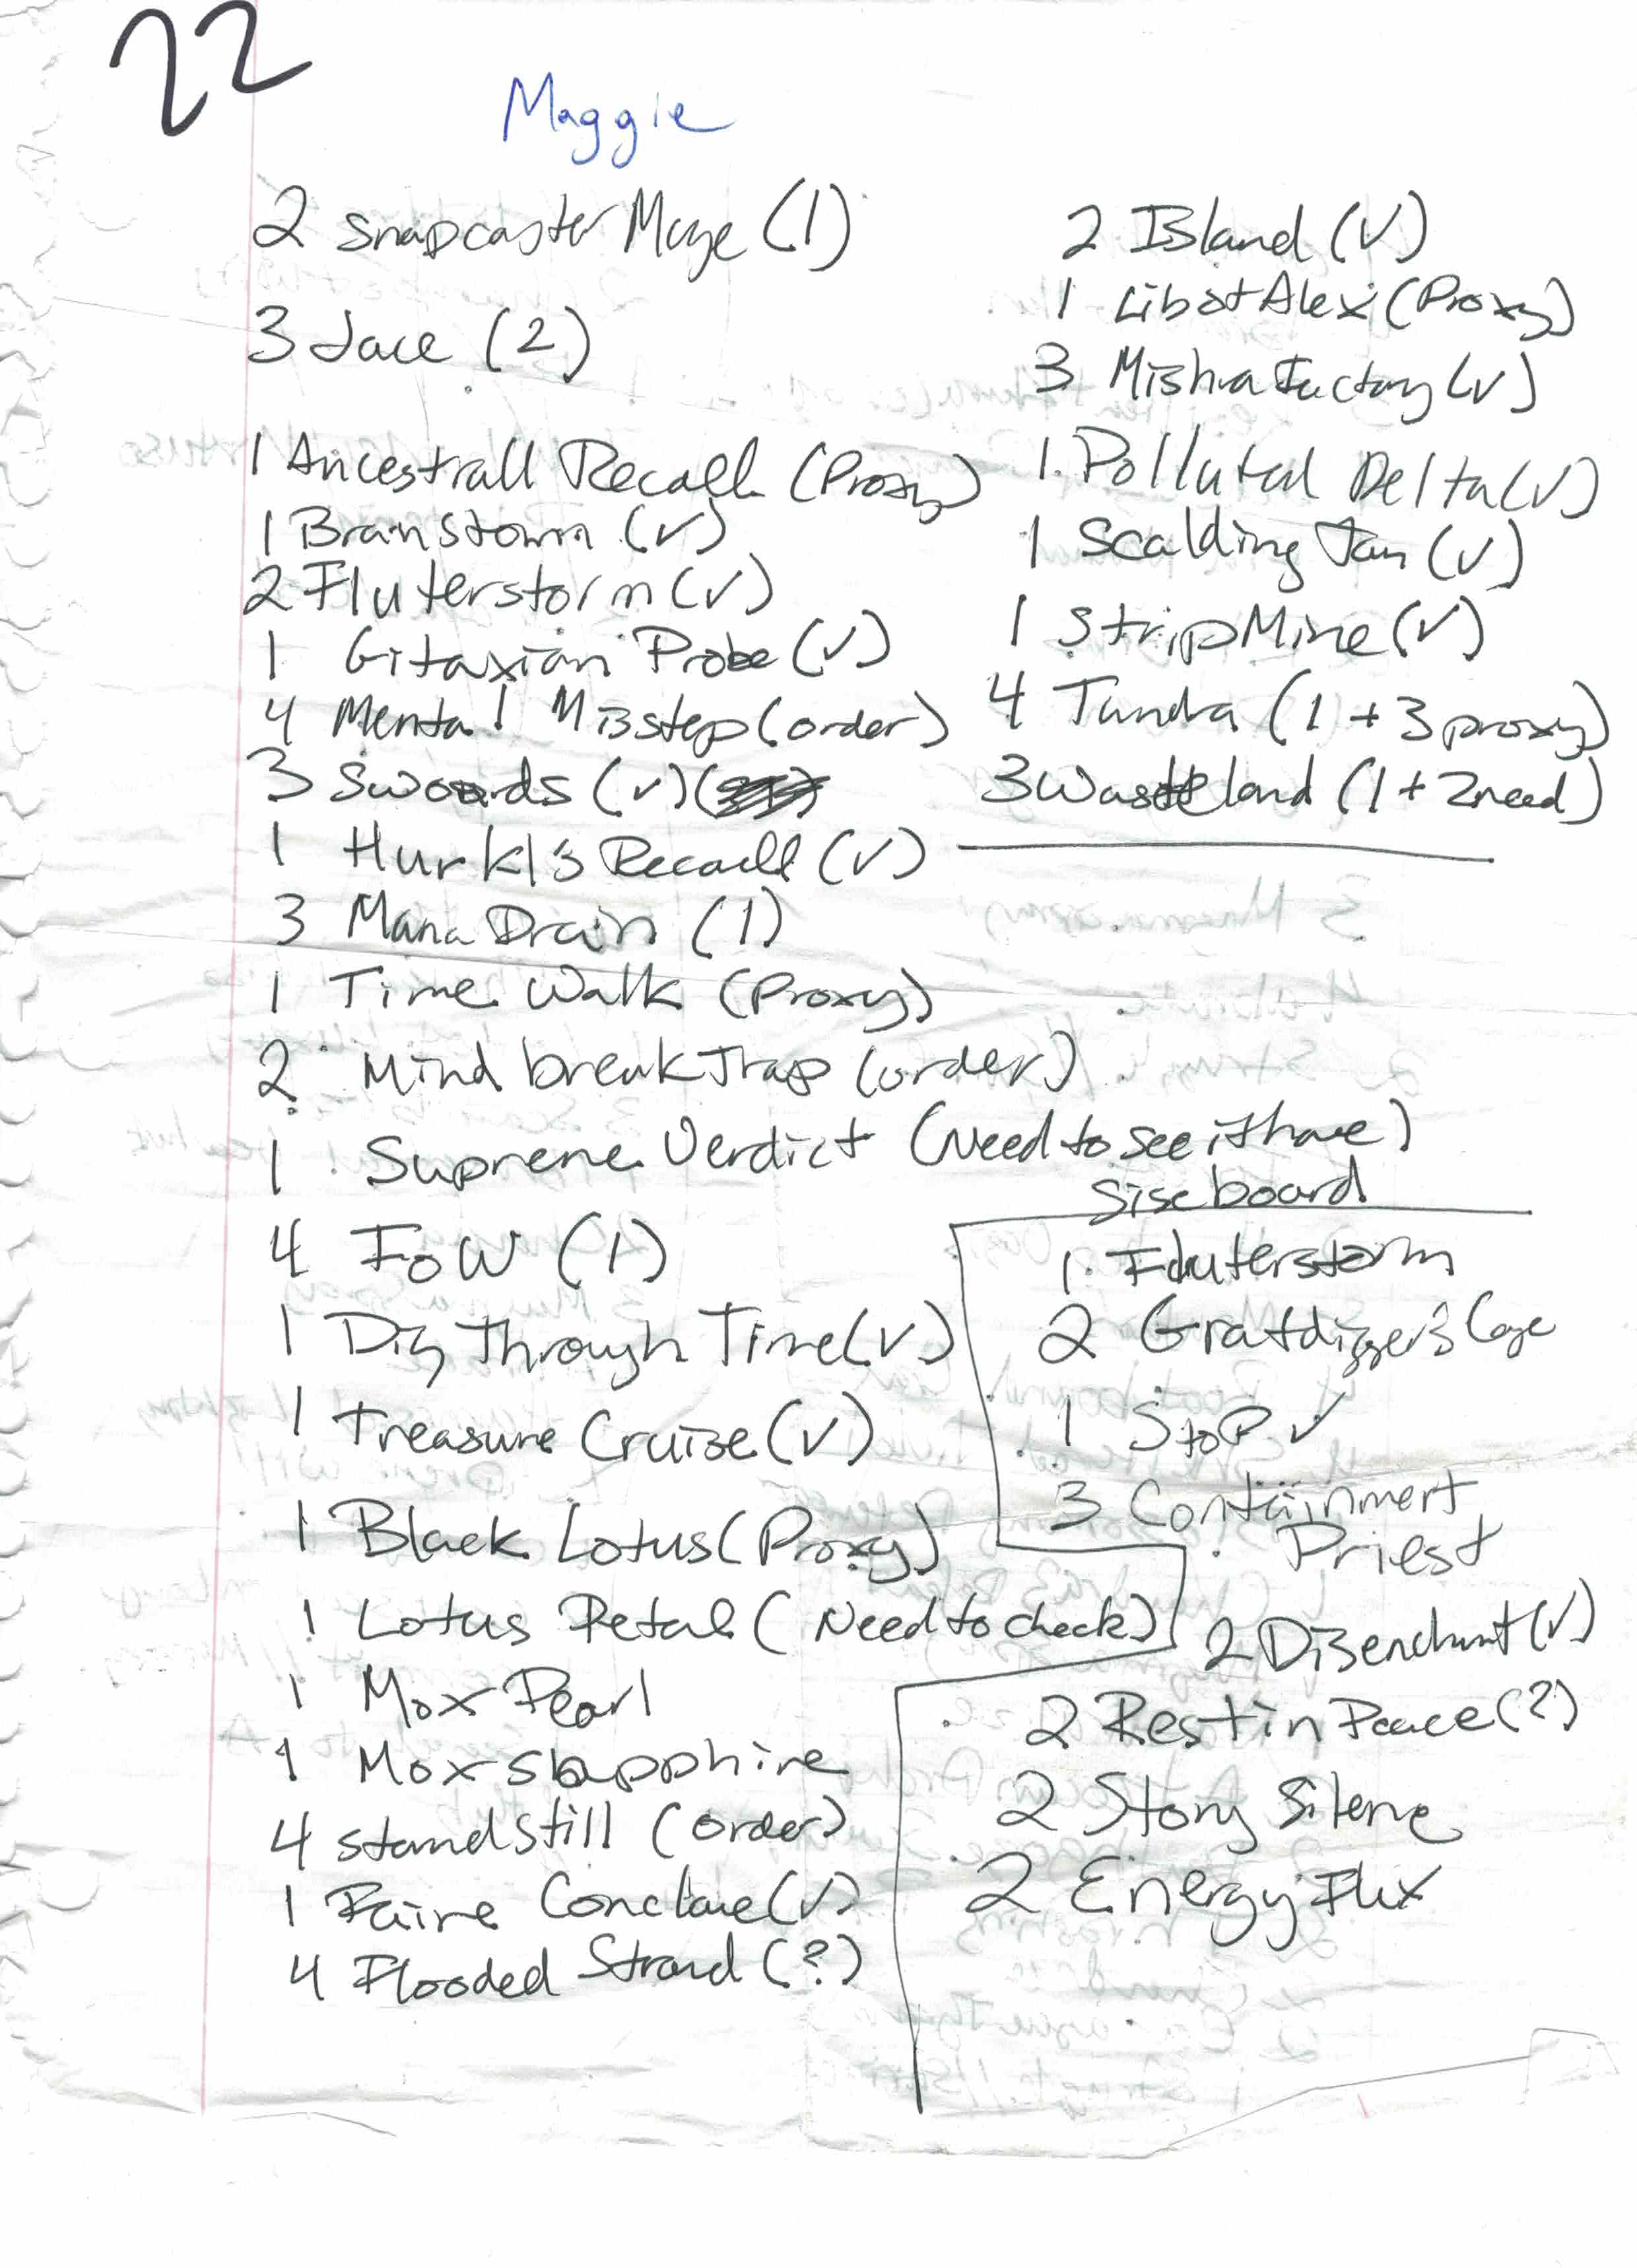 22
Maggie
2 Snapcaster Mage (1)
3 Jace (2)
1 Ancestrall Recall (Proxy)
1 Brainstorm (✓)
2 Fluterstorm (✓)
1 Gitaxian Probe (✓)
4 Mental Misstep (order)
3 Swoards (✓)
1 Hurkl's Recall (✓)
3 Mana Drain (1)
1 Time Walk (Proxy)
2 Mind break Trap (order)
1 Supreme Verdict (Need to see if have)
4 FoW (1)
1 Dig Through Time (✓)
1 Treasure Cruise (✓)
1 Black Lotus (Proxy)
1 Lotus Petal (Need to check)
1 Mox Pearl
1 Mox Sapphire
4 Standstill (order)
1 Fairie Conclave (✓)
4 Flooded Strand (?)
2 Island (✓)
1 Lib of Alex (Proxy)
3 Mishra Factory (✓)
1 Polluted Delta (✓)
1 Scalding Tarn (✓)
1 Strip Mine (✓)
4 Tundra (1 + 3 proxy)
3 Wasteland (1 + 2 need)
Siseboard
1 Fluterstorm
2 Grafdigger's Cage
1 StoP ✓
3 Containment
Priest
2 Disenchant (✓)
2 Rest in Peace (?)
2 Stony Silence
2 Energy Flux